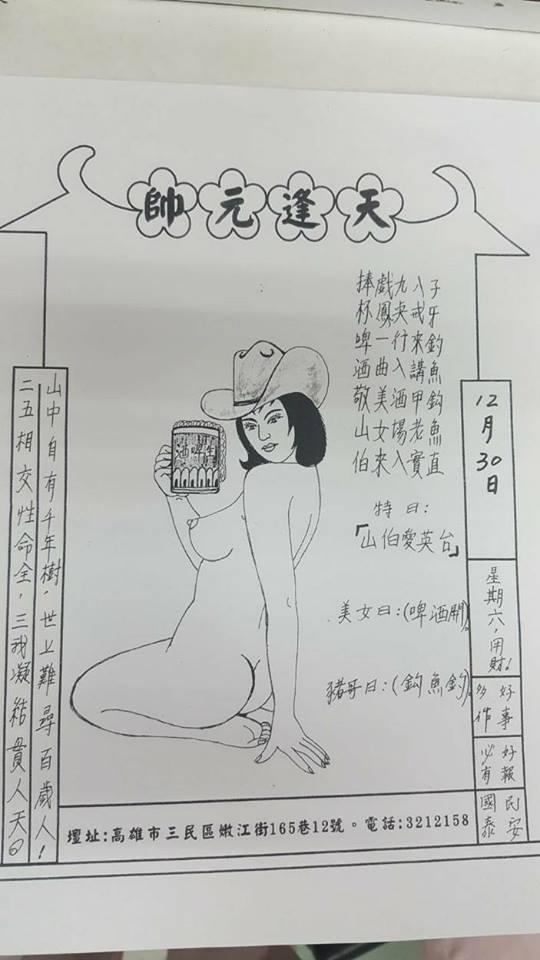 天逢元帥
12月30日
星期六，用財！
好事
多作
好報
必有
民安
國泰
子牙釣魚鈎魚直
八戒來講甲老實
九央行入酒場入
戲鳳一曲美女來
捧杯啤酒敬山伯
特曰：
「山伯愛英台」
美女曰：(啤酒開)。
豬哥曰：(釣魚釣)。
生啤酒
山中自有千年樹，世上難尋百歲人！
二五相交性命全，三我凝結貫人天。
壇址:高雄市三民區嫩江街165巷12號。電話:3212158